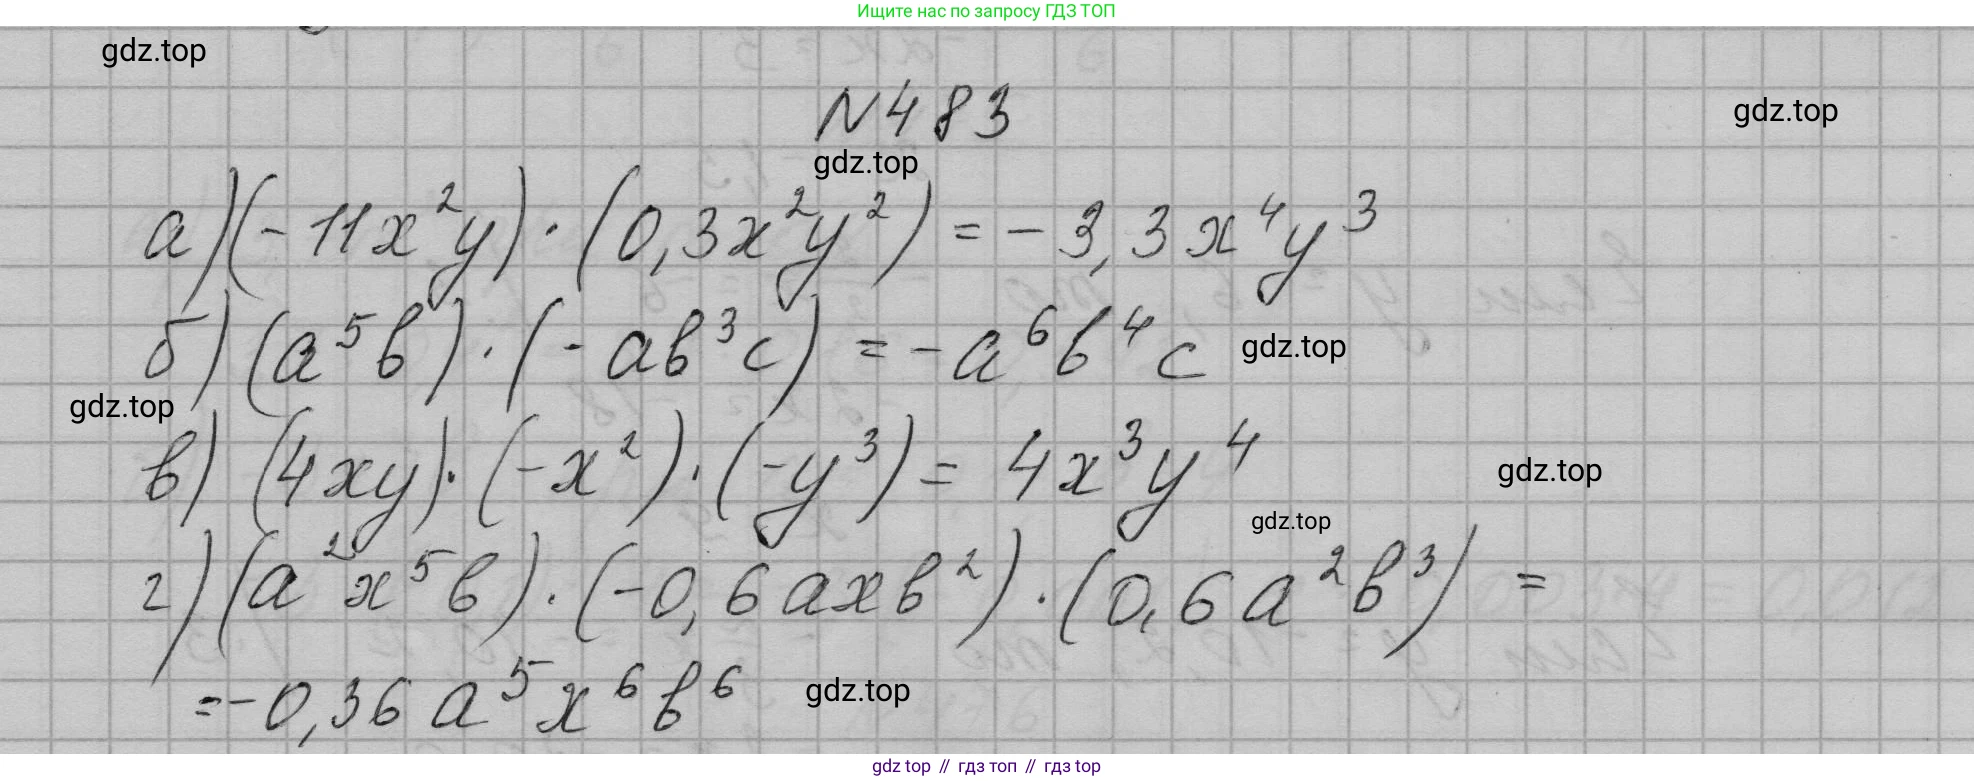 Ищите нас по запросу ГДЗ ТОП
gdz.top
N483
gdz.top
gdz.top
а) (-11x²y) · (0,3x²y²) = -3,3x⁴y³
б) (a⁵b) · (-ab³c) = -a⁶b⁴c
gdz.top
gdz.top
в) (4xy) · (-x²) · (-y³) = 4x³y⁴
gdz.top
gdz.top
г) (a²x⁵b) · (-0,6axb²) · (0,6a²b³) =
= -0,36a⁵x⁶b⁶
gdz.top
gdz top // гдз топ // гдз top